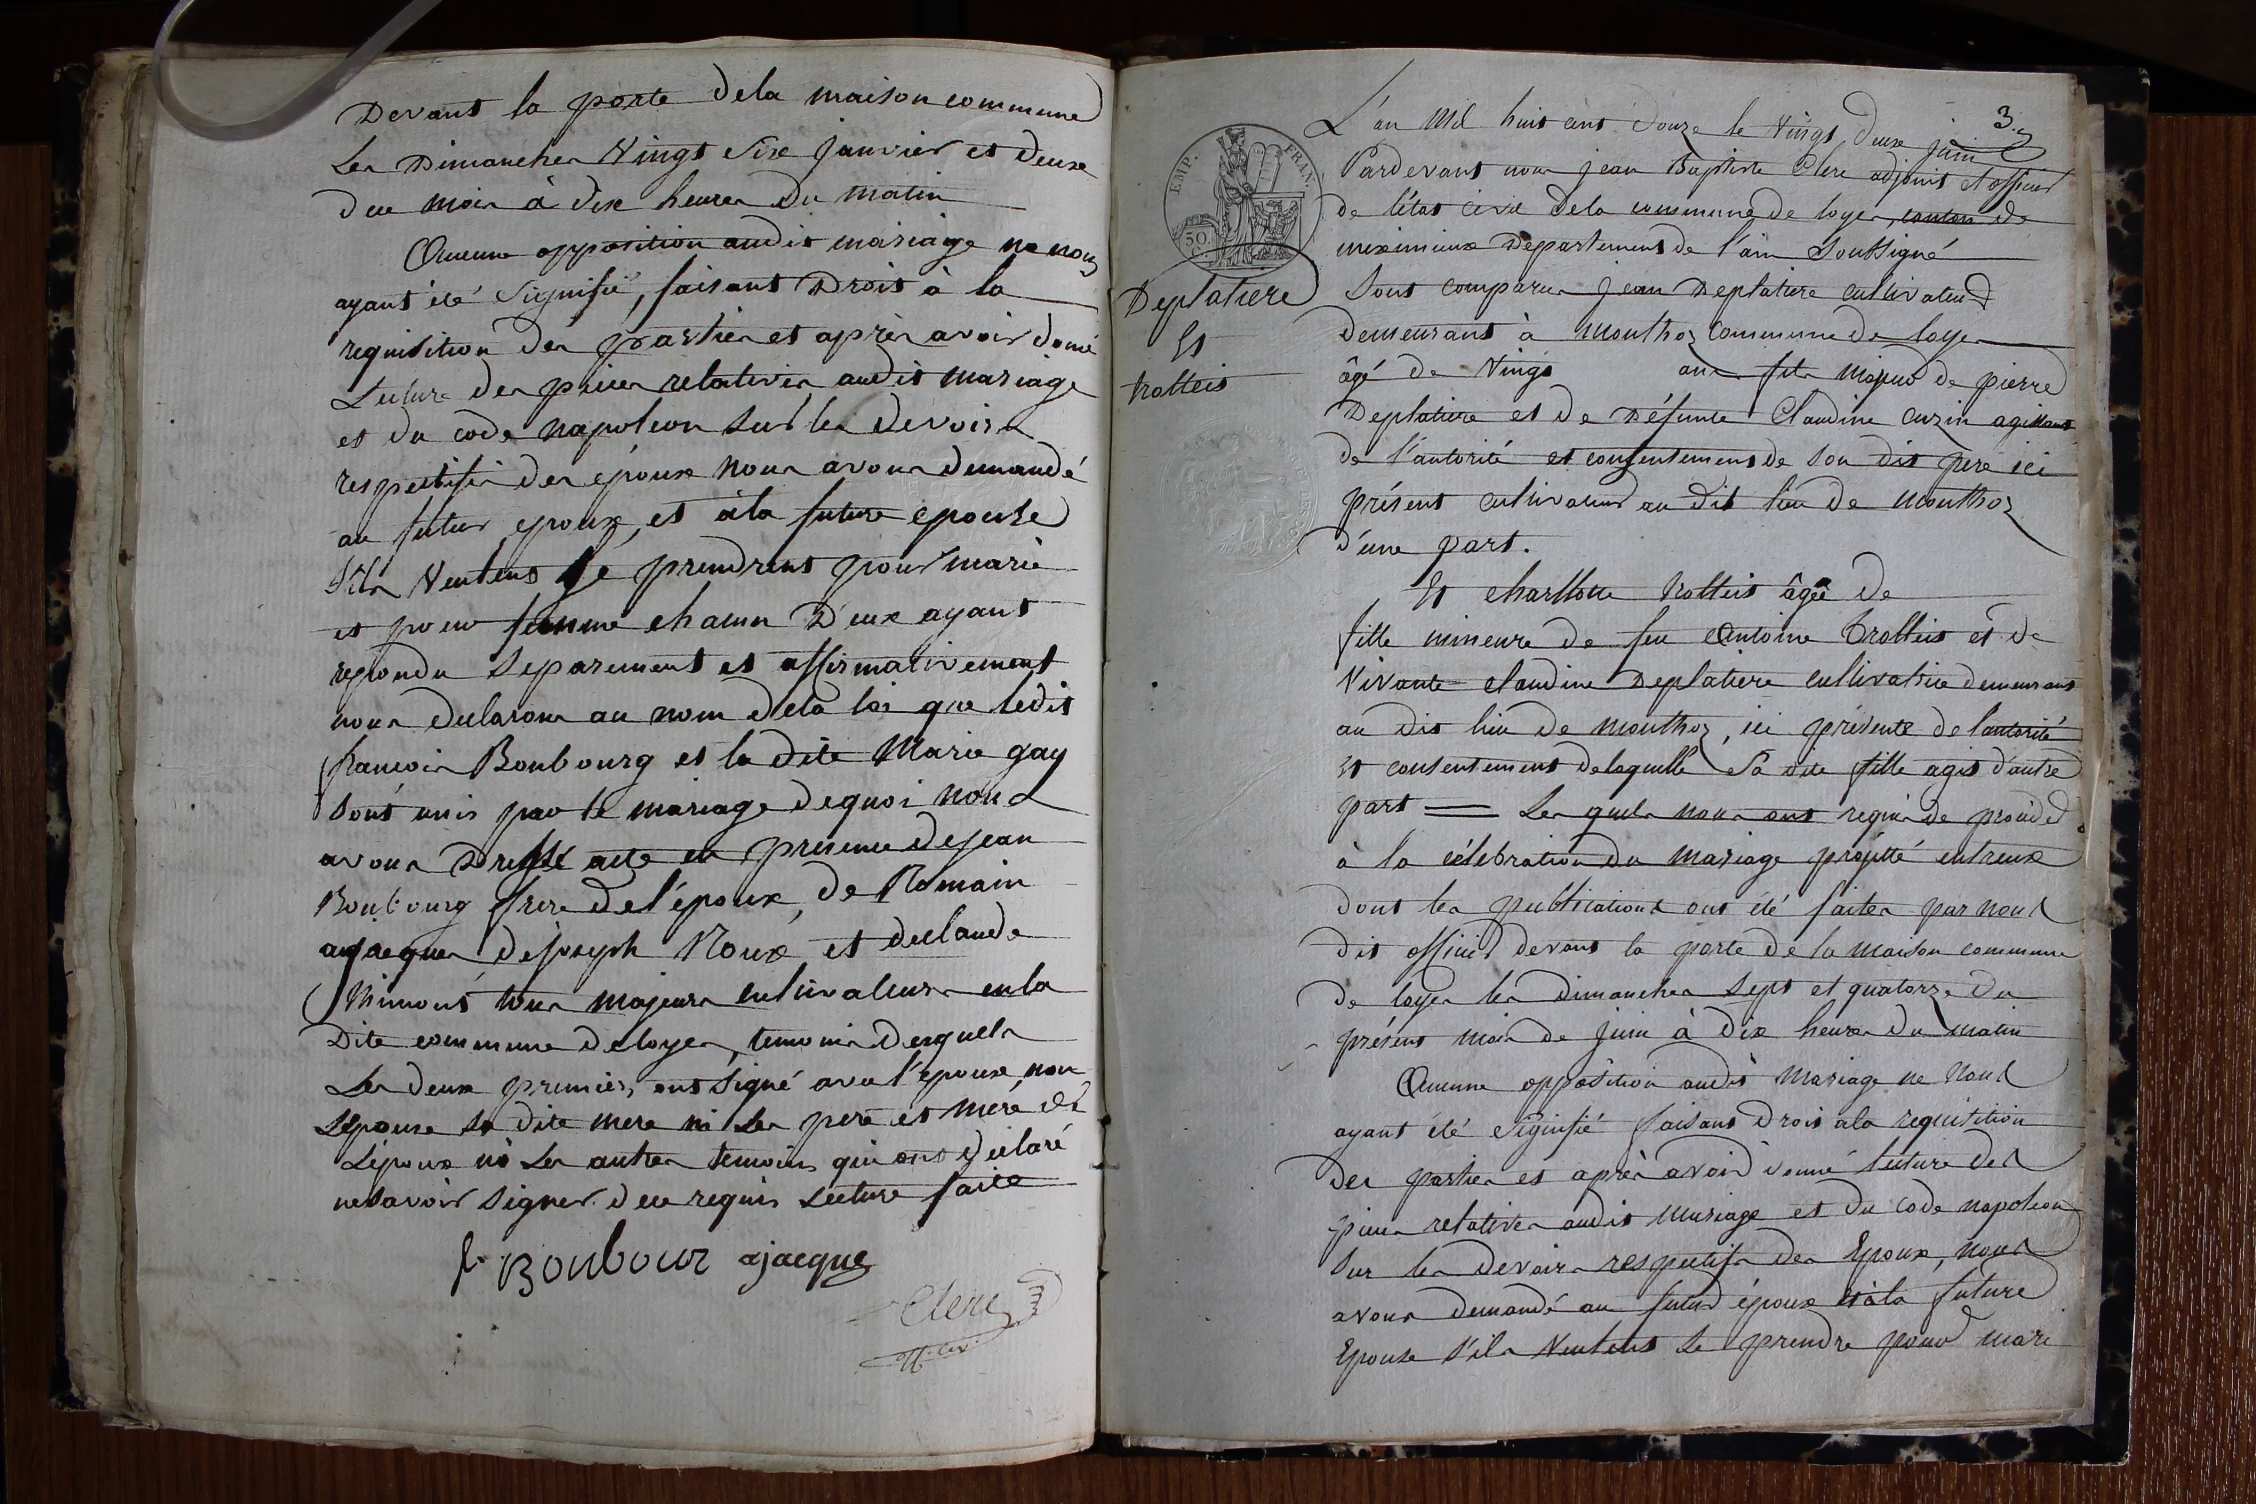 Devant la porte dela maison commune
Les Dimanches Vingt Six janvier et deux
due mois à dix heures du matin
Aucune opposition audit mariage ne nous
ayant été signifié, faisant Droit à la
requisition des parties et après avoir donné
Lecture des pieces relatives audit mariage
et du code napoleon sur les devoirs
respectifs des époux nous avons demandé
au futur epoux, et àla future epouse
s'ils veulent se prendrent pour marie
et pour femme chacun D'eux ayant
repondu separement et affirmativement
nous declarons au nom dela loi que ledit
francois Bonbourg et la dite Marie gay
sont unis par le mariage dequoi nous
avons Dressé acte en presence dejean
Bonbourg frere del'époux, de Romain
ajacques, dejoseph Roux et declaude
Mimont tous majeurs cultivateurs enla
dite commune deloyes, temoins desquels
Les deux premiers ont signé avec l'epoux, non
L'epouse sa dite mere ni Les pere et mere de
L'epoux ni Les autres temoins qui ont declaré
nesavoir signer dece requis Lecture faite
f. Bonbour ajacque
Clerc
off. civ
3.
L'an Mil huit cent douze le Vingt deux juin
Pardevant nous jean Baptiste Clerc adjoint et officier
de l'état civil dela commune de loyes, canton de
meximieux Departement de l'ain soussigné
Deplatiere
Et
trolleis
EMP. FRAN.
50. C.
Sont comparus jean Deplatiere cultivateur
demeurant à Monthoz commune de loyes
âgé de Vingt ans fils majeur de pierre
Deplatiere et de Défunte Claudine cuzin agissant
de l'autorité et consentement de son dit pere ici
présent cultivateur au dit lieu de Monthoz
d'une part.
Et charllotte trolleis âgée de
fille mineure de feu Antoine trolleis et de
Vivante claudine Deplatiere cultivatrice demeurant
au dit lieu de monthoz, ici présente de l'autorité
et consentement delaquelle sa dite fille agit d'autre
part = Les quels nous ont requis de proceder
à la célebration du mariage projetté entreux
dont les publications ont été faites par nous
dit officier devant la porte de la maison commune
de loyes les dimanches sept et quatorze du
présent mois de juin à dix heures du matin
Aucune opposition audit mariage ne nous
ayant été signifié faisant droit àla requisition
des parties et après avoir donné lecture des
pieces relatives audit mariage et du code napoleon
sur les devoirs respectifs des Epoux, nous
avons demandé au futur époux et àla future
Epouse s'ils veulent se prendre pour mari